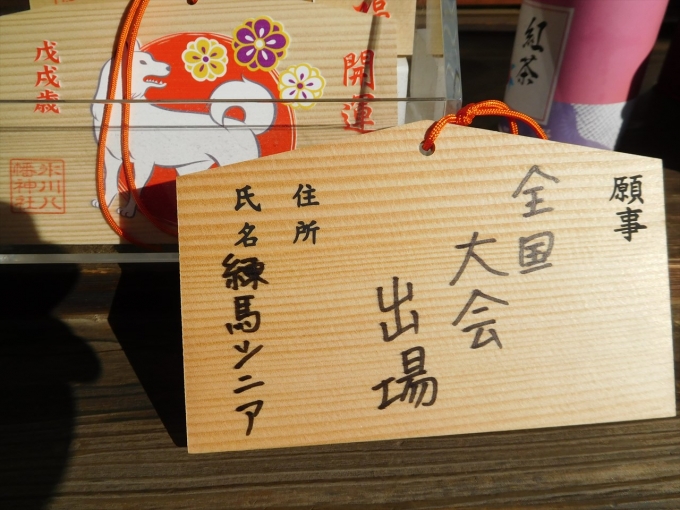 願事
全国
大会
出場
住所
氏名 練馬シニア
開運
戊戌歳
氷川八
幡神社
紅茶